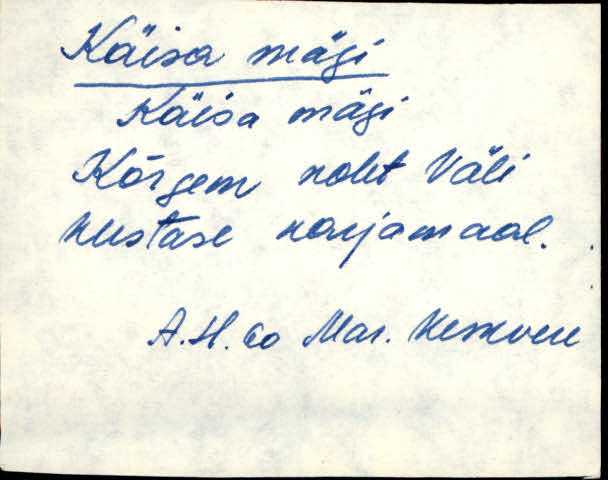 Käisa mägi
Käisa mägi
Kõrgem koht Väli
kustase karjamaal.
A.H. 60 Mar.